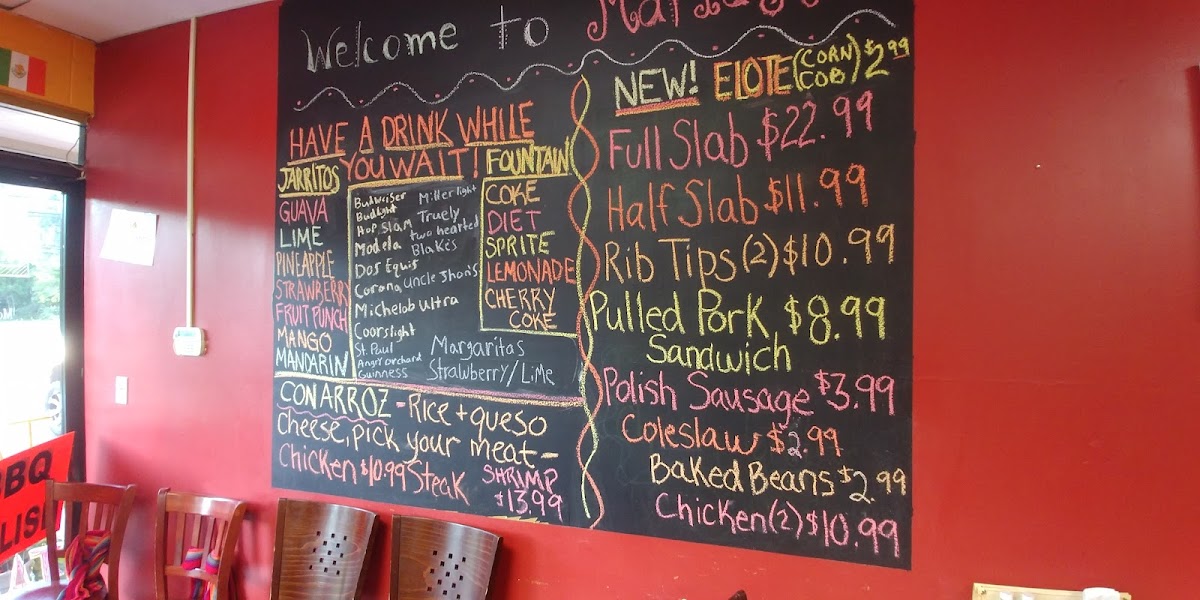 Welcome to
HAVE A DRINK WHILE
YOU WAIT!
JARRITOS
GUAVA
LIME
PINEAPPLE
STRAWBERRY
FRUIT PUNCH
MANGO
MANDARIN
Budweiser
Budlight
Hop Slam
Modela
Dos Equis
Corona
Michelob Ultra
Coorslight
St. Paul
Angry orchard
Guinness
Miller light
Truely
two hearted
Blake's
Uncle Jhon's
Margaritas
Strawberry/Lime
FOUNTAIN
COKE
DIET
SPRITE
LEMONADE
CHERRY
COKE
CON ARROZ - Rice + queso
Cheese, pick your meat -
Chicken $10.99 Steak
SHRIMP
$13.99
NEW! ELOTE (CORN COB) $2.99
Full Slab $22.99
Half Slab $11.99
Rib Tips (2) $10.99
Pulled Pork $8.99
Sandwich
Polish Sausage $3.99
Coleslaw $2.99
Baked Beans $2.99
Chicken (2) $10.99
BBQ